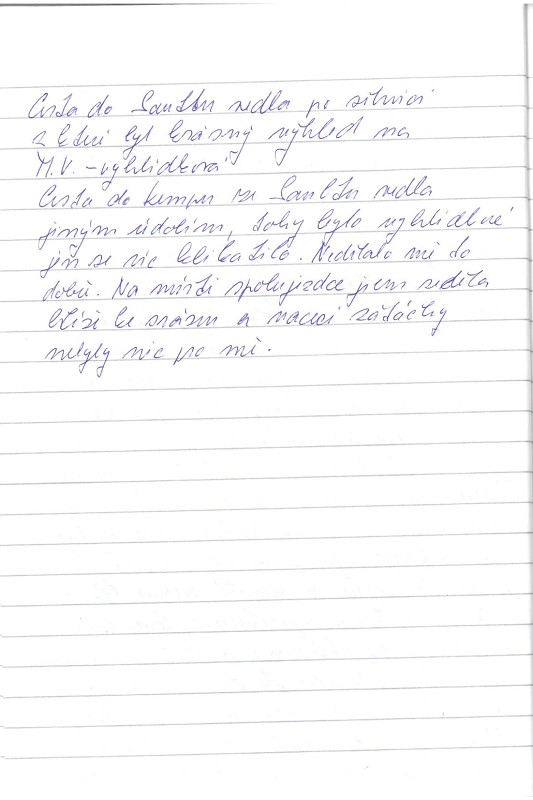 Cesta do Saultu vedla po silnici
z které byl krásný výhled na
M.V. - vyhlídková
Cesta do kempu za Saultu vedla
jiným údolím, taky bylo vyhlídkové
jen se víc klikatilo. Nedělalo mi to
dobře. Na místě spolujezdce jsem seděla
blíž ke srázu a vracecí zatáčky
nebyly nic po mě.